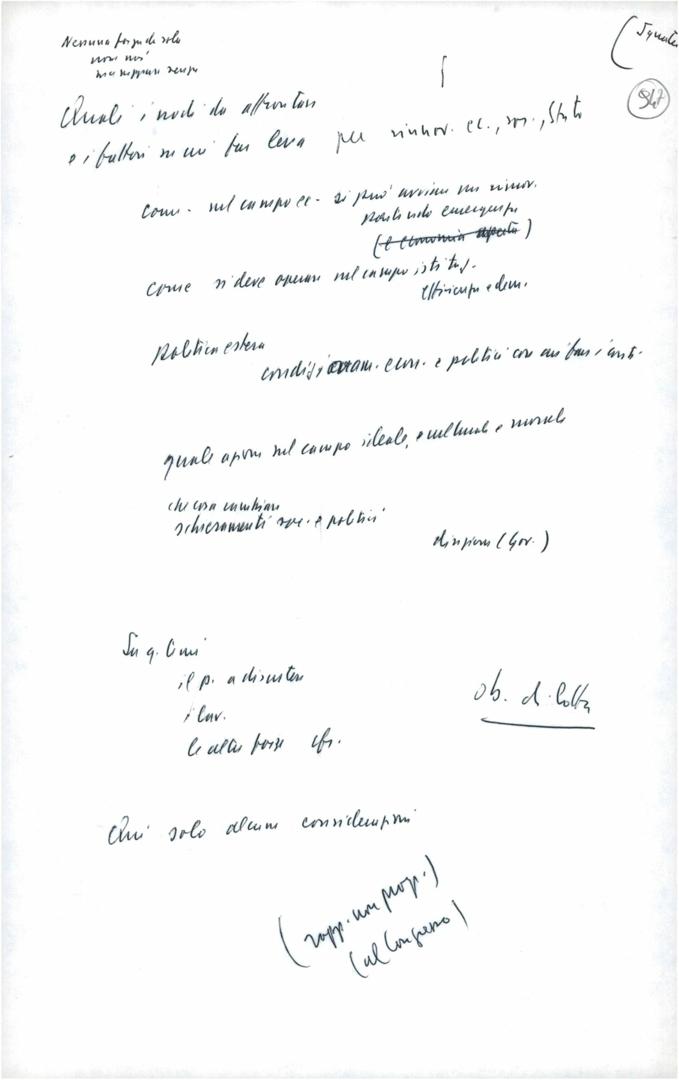 Nessuna forza da sola
non noi
ma neppure senza
(Squate
347
Quali i nodi da affrontare
e i fattori su cui far leva per rinnov. ec., soc., Stato
come - nel campo ec - si può avviare un rinnov.
partendo emergenza
(e economia aperta)
come si deve operare nel campo istituz.
efficienza e dem.
politica estera
condizionam. econ. e politici con cui fare i conti.
quale azione nel campo ideale, culturale e morale
che cosa cambiare
schieramenti soc. e politici
direzione (Gov.)
Su q. limi
il p. a discutere
i lav.
le altre forze
ob. di lotta
Qui solo alcune considerazioni
(rapp. non prog.)
(al Congresso)